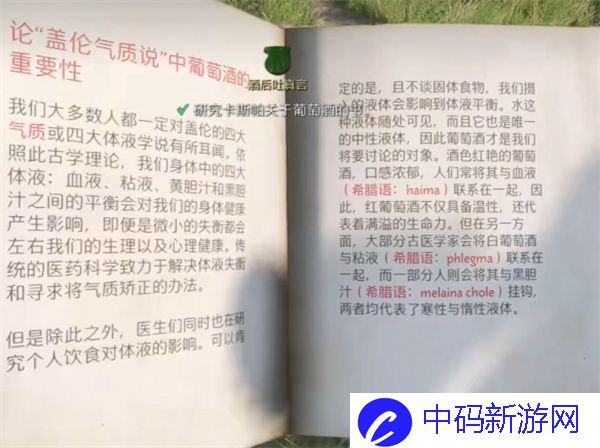 论“盖伦气质说”中葡萄酒的
重要性
我们大多数人都一定对盖伦的四大
气质或四大体液学说有所耳闻。依
照此古学理论，我们身体中的四大
体液：血液、粘液、黄胆汁和黑胆
汁之间的平衡会对我们的身体健康
产生影响，即便是微小的失衡都会
左右我们的生理以及心理健康。传
统的医药科学致力于解决体液失衡
和寻求将气质矫正的办法。
但是除此之外，医生们同时也在研
究个人饮食对体液的影响。可以肯
酒后吐真言
✓ 研究卡斯帕关于葡萄酒的书
定的是，且不谈固体食物，我们摄
的液体会影响到体液平衡。水这
种液体随处可见，而且它也是唯一
的中性液体，因此葡萄酒才是我们
将要讨论的对象。酒色红艳的葡萄
酒，口感浓郁，人们常将其与血液
（希腊语：haima）联系在一起，因
此，红葡萄酒不仅具备温性，还代
表着满溢的生命力。但在另一方
面，大部分古医学家会将白葡萄酒
与粘液（希腊语：phlegma）联系在
一起，而一部分人则会将其与黑胆
汁（希腊语：melaina chole）挂钩，
两者均代表了寒性与惰性液体。
中码新游网